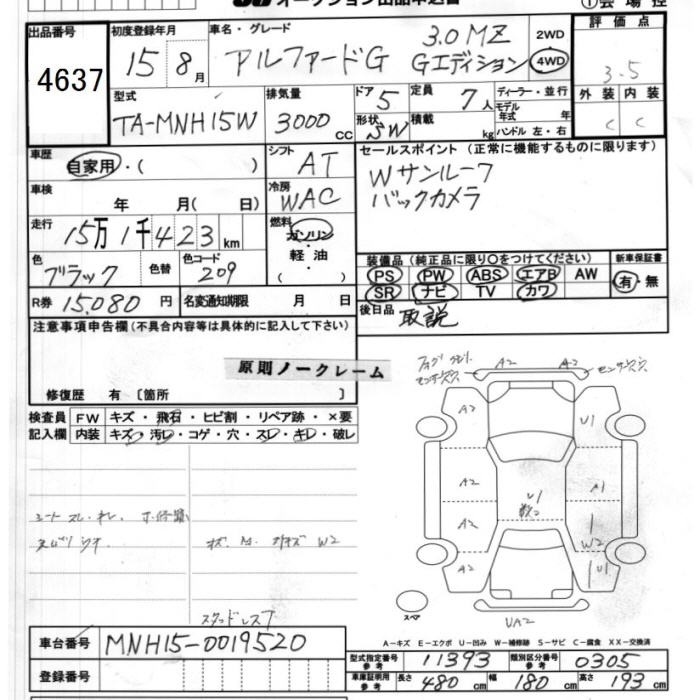 オークション出品申込書
①会場控
出品番号
4637
初度登録年月
15 8月
車名・グレード
アルファードG 3.0 MZ Gエディション
2WD
4WD
評価点
3.5
外装 内装
C C
型式
TA-MNH15W
排気量
3000cc
ドア 5
形状 SW
定員 7人
積載 kg
ディーラー・並行
モデル年式 年
ハンドル 左・右
車歴
自家用・( )
シフト AT
車検
年 月( 日)
冷房 WAC
走行
15万1千423km
燃料
ガソリン・軽油・( )
色
ブラック
色替
色コード
209
R券 15,080円
名変通知期限 月 日
セールスポイント(正常に機能するものに限ります)
Wサンルーフ
バックカメラ
装備品(純正品に限り〇をつけてください)
PS PW ABS エアB AW
SR ナビ TV カワ
新車保証書
有・無
後日品 取説
注意事項申告欄(不具合内容等は具体的に記入して下さい)
原則ノークレーム
修復歴 有〔箇所 〕
検査員記入欄
FW キズ・飛石・ヒビ割・リペア跡・×要
内装 キズ・汚レ・コゲ・穴・スレ・キレ・破レ
シートスレ・キレ
W2
スタッドレス
A2 A2
A2 U1
A2 A1
U1
A2 W2
A2 U1
UA2
スペア
A-キズ E-エクボ U-凹み W-補修跡 S-サビ C-腐食 XX-交換済
車台番号 MNH15-0019520
登録番号
型式指定番号 参考 11393
類別区分番号 参考 0305
車庫証明用 参考 長さ 480cm 幅 180cm 高さ 193cm